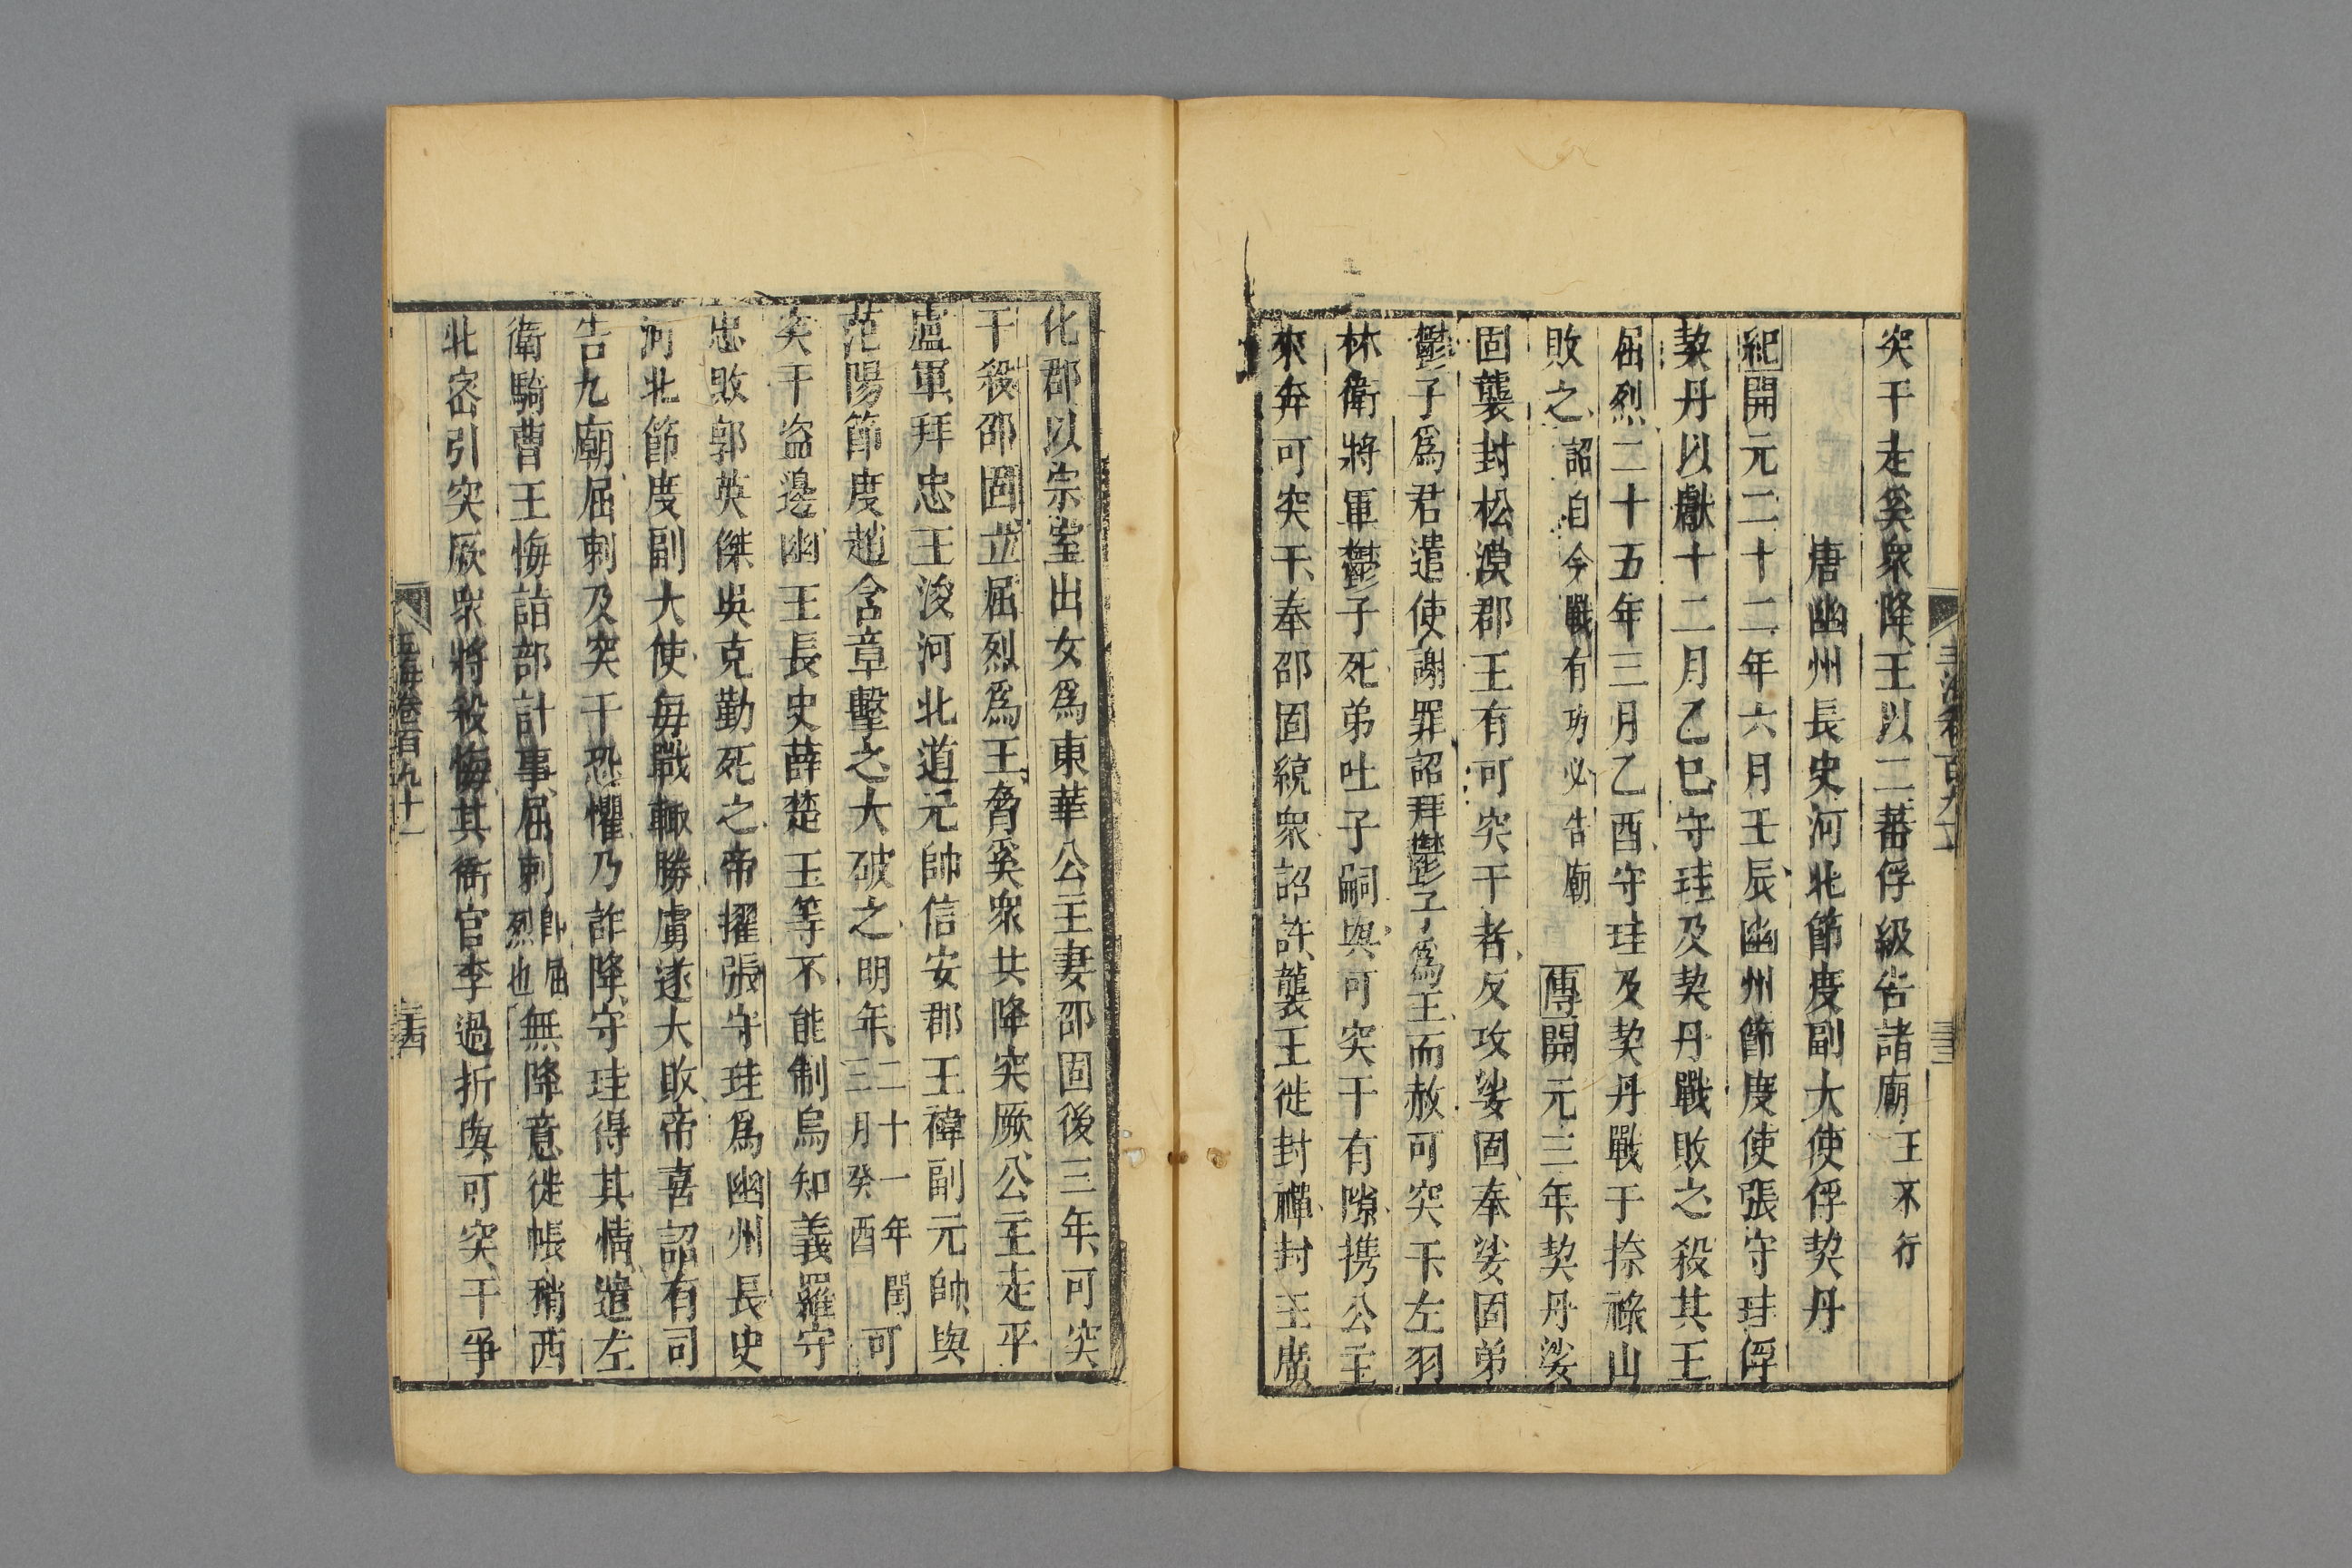 突干走奚衆降王以二蕃俘級告諸廟王不行
唐幽州長史河北節度副大使俘契丹
紀開元二十二年六月壬辰幽州節度使張守珪俘
契丹以獻十二月乙巳守珪及契丹戰敗之殺其王
屈烈二十五年三月乙酉守珪及契丹戰于捺祿山
敗之詔自今戰有功必告廟傳開元三年契丹娑
固襲封松漠郡王有可突干者反攻娑固奉娑固弟
鬱于爲君遣使謝罪詔拜鬱于爲王而赦可突干左羽
林衛將軍鬱于死弟吐于嗣與可突干有隙携公主
來奔可突干奉邵固統衆詔許襲王徙封禪封王廣
化郡以宗室出女爲東華公主妻邵固後三年可突
干殺邵固立屈烈爲王脅奚衆共降突厥公主走平
盧軍拜忠王浚河北道元帥信安郡王禕副元帥與
范陽節度趙含章擊之大破之明年二十一年閏三月癸酉可
突干盜邊幽王長史薛楚玉等不能制烏知義羅守
忠敗郭英傑吳克勤死之帝擢張守珪爲幽州長史
河北節度副大使每戰輒勝虜遂大敗帝喜詔有司
告九廟屈剌及突干恐懼乃詐降守珪得其情遣左
衛騎曹王悔詣部計事屈剌即屈烈也無降意徙帳稍西
北密引突厥衆將殺悔其衙官李過折與可突干爭
玉海卷百九十一
三十四